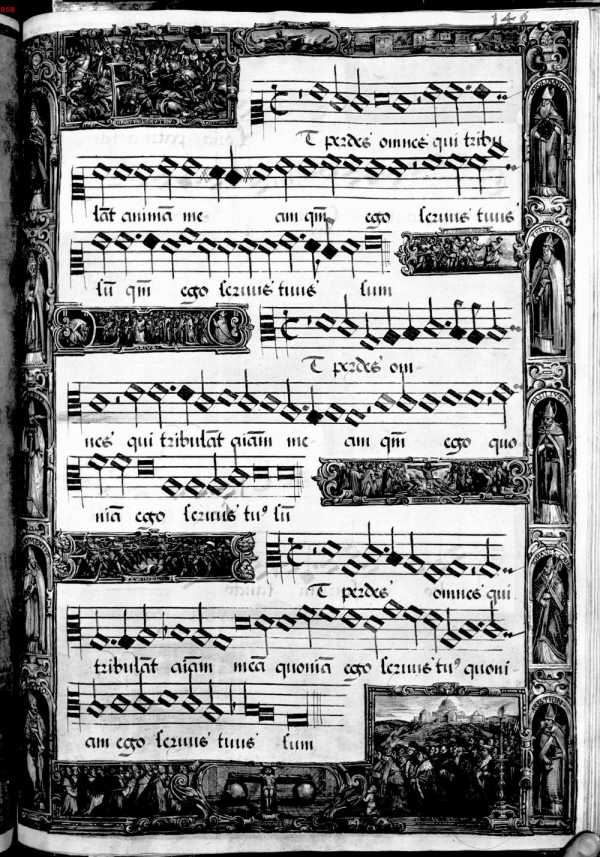 146
T perdes omnes qui tribu
lāt animā me am qm̄ ego servus tuus
sū qm̄ ego servus tuus sum
T perdes om
nes qui tribulāt aīam me am qm̄ ego quo
niā ego servus tu⁹ sū
T perdes omnes qui
tribulāt aīam meā quoniā ego servus tu⁹ quoni
am ego servus tuus sum